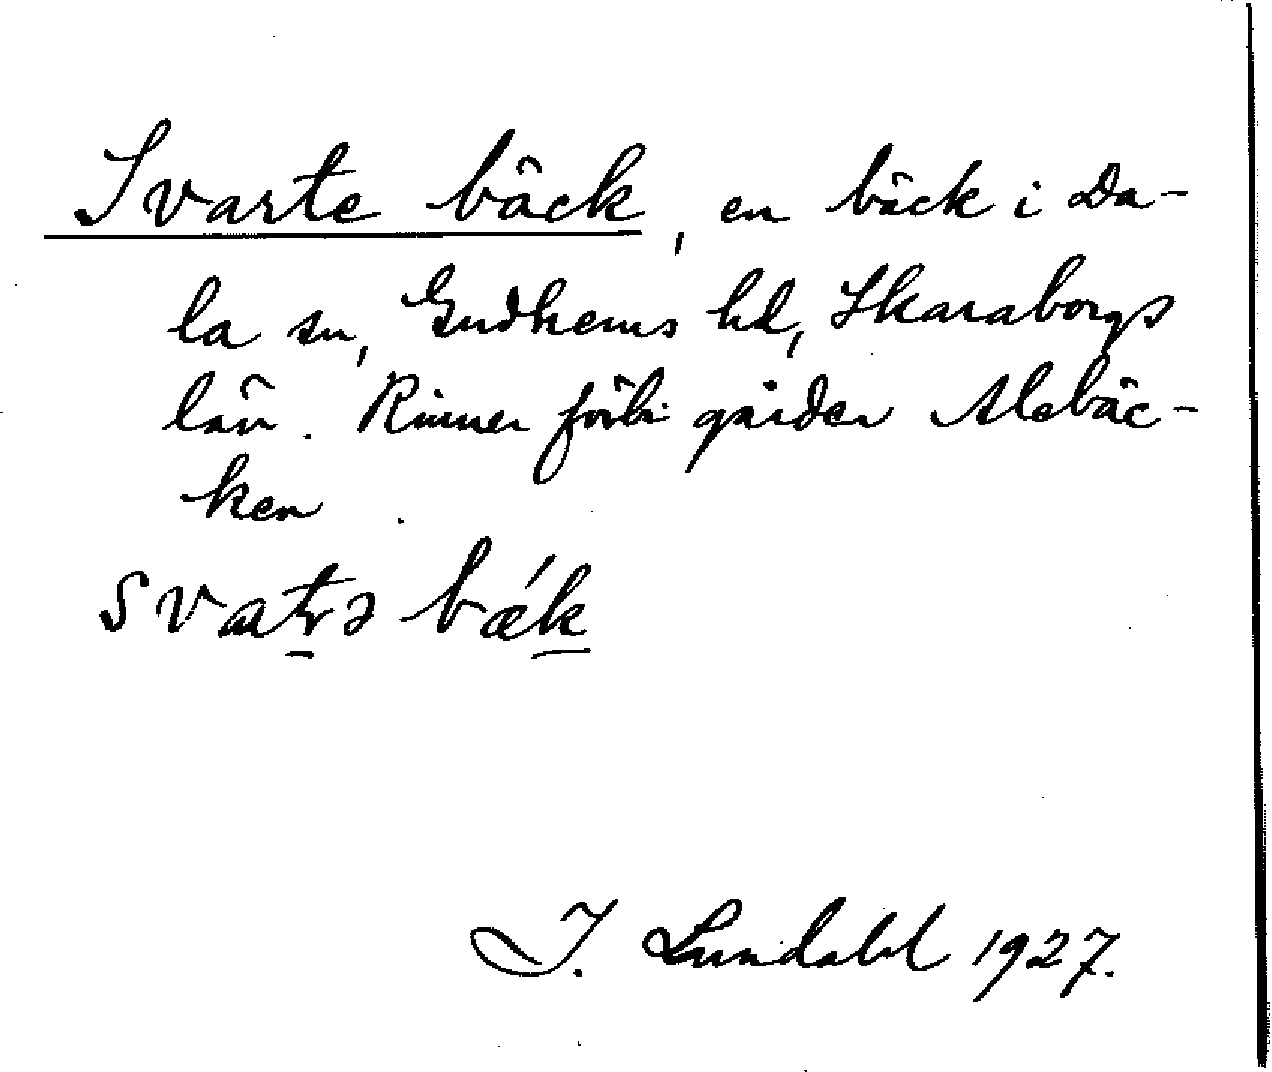 Svarte bäck, en bäck i Da-
la sn, Gudhems hd, Skaraborgs
län. Rinner förbi gården Alebäc-
ken.
svatə bǽk
I. Lundahl 1927.